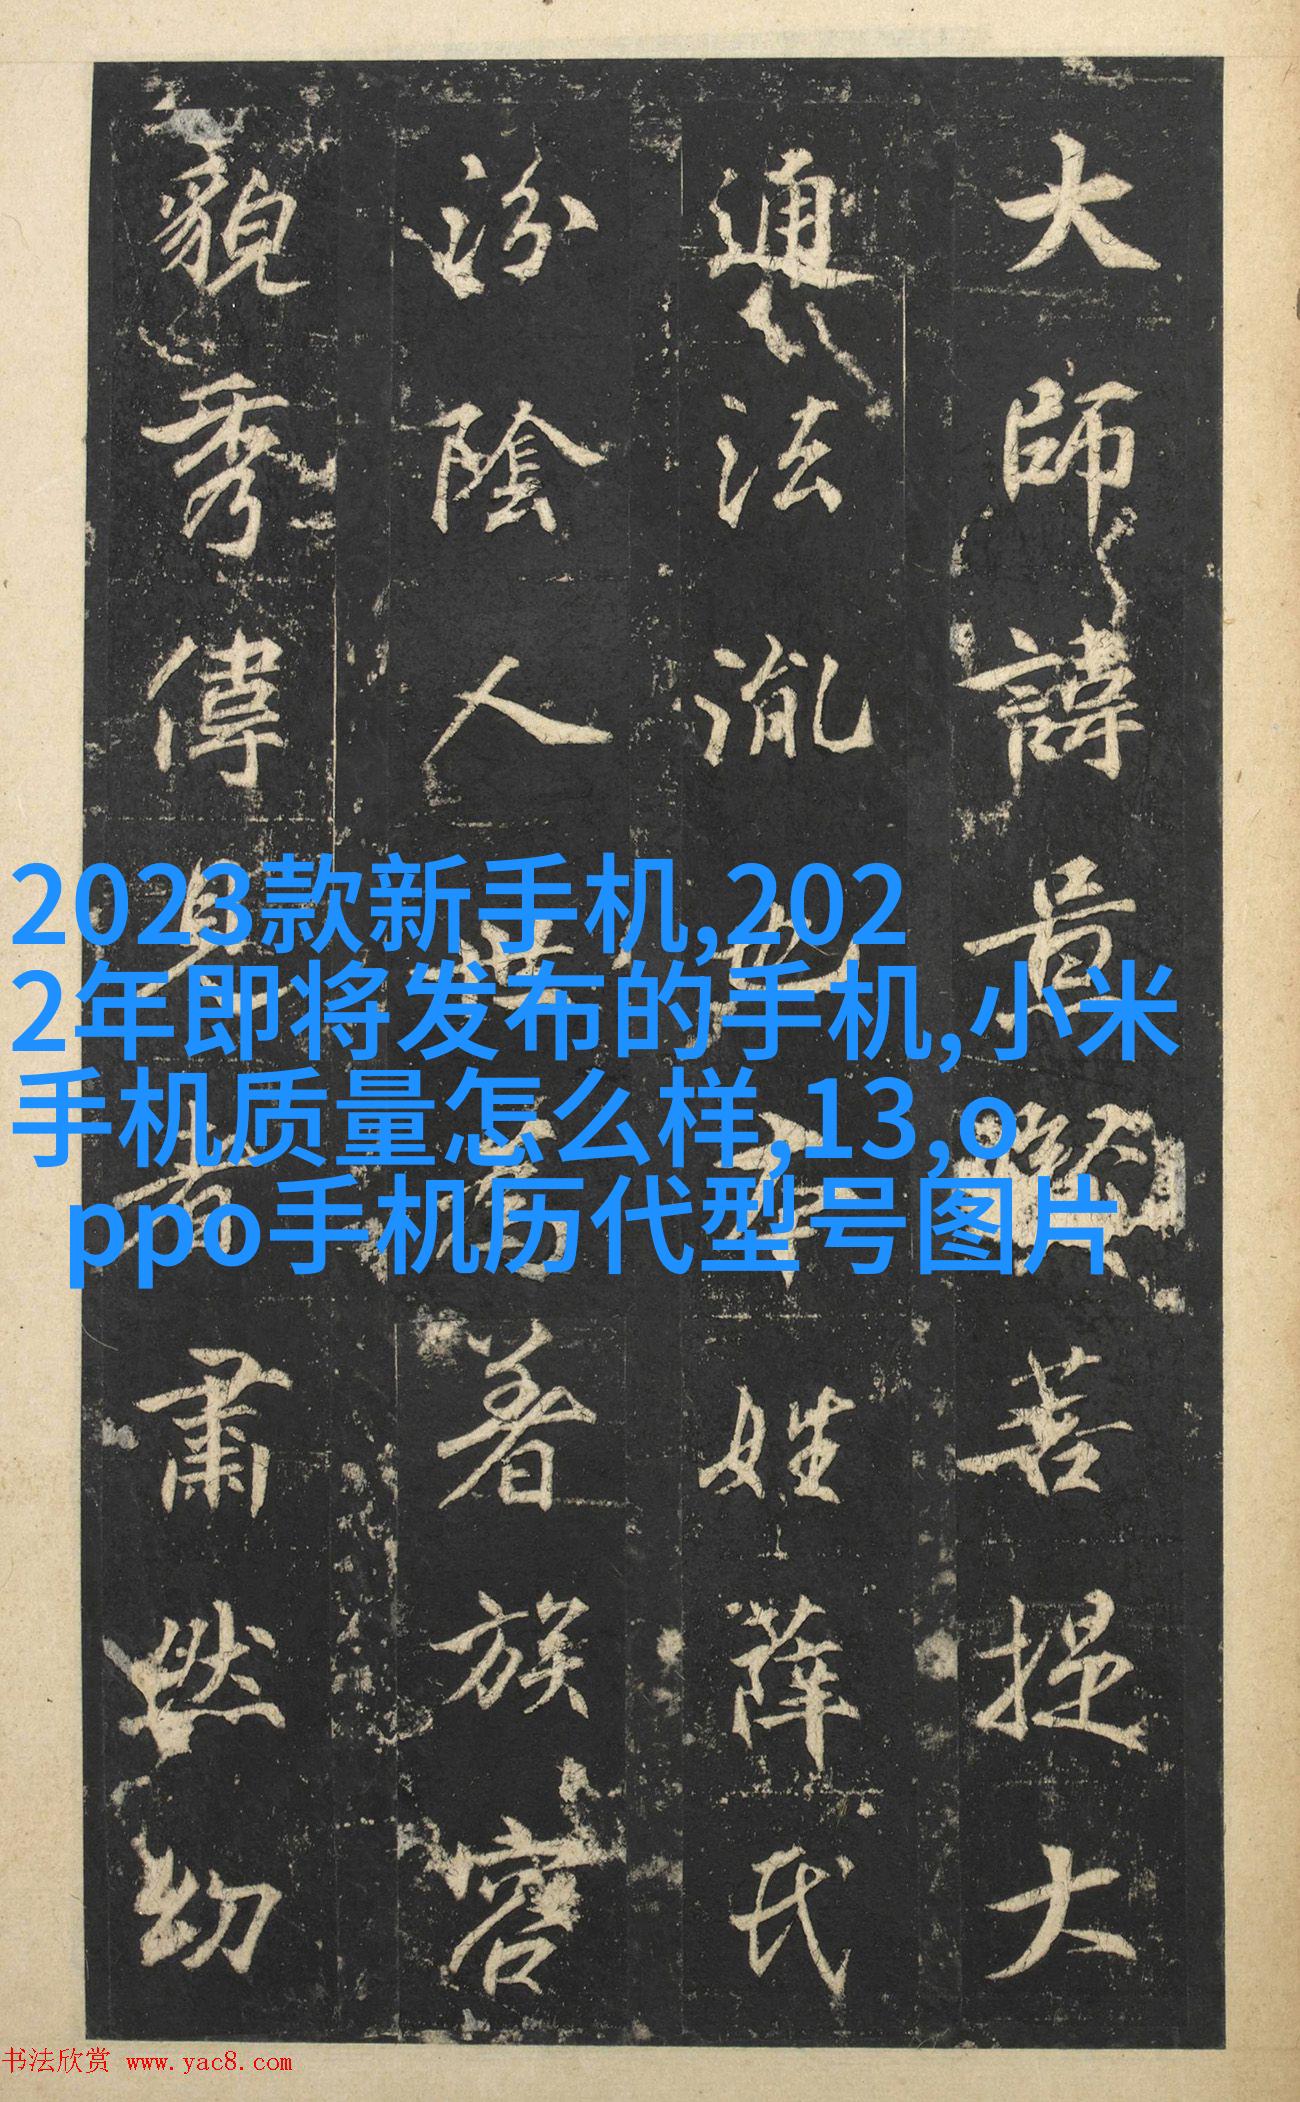 大師諱菩提大
通法胤也姓薛氏
汾陰人世為著族容
貌秀偉見者肅然幼
2023款新手机,202
2年即将发布的手机,小米
手机质量怎么样,13,o
ppo手机历代型号图片
书法欣赏 www.yac8.com